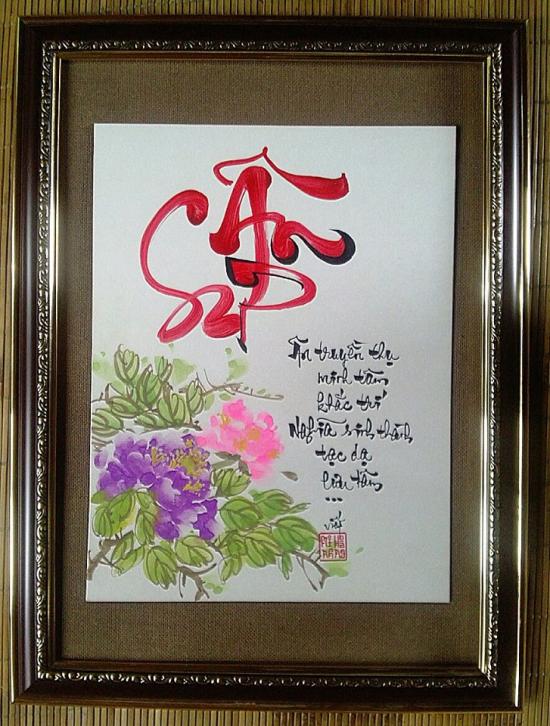 Ân
Sư
Ân truyền thụ
minh tâm
khắc trí
Nghĩa sinh thành
tạc dạ
lưu tâm
...
viết